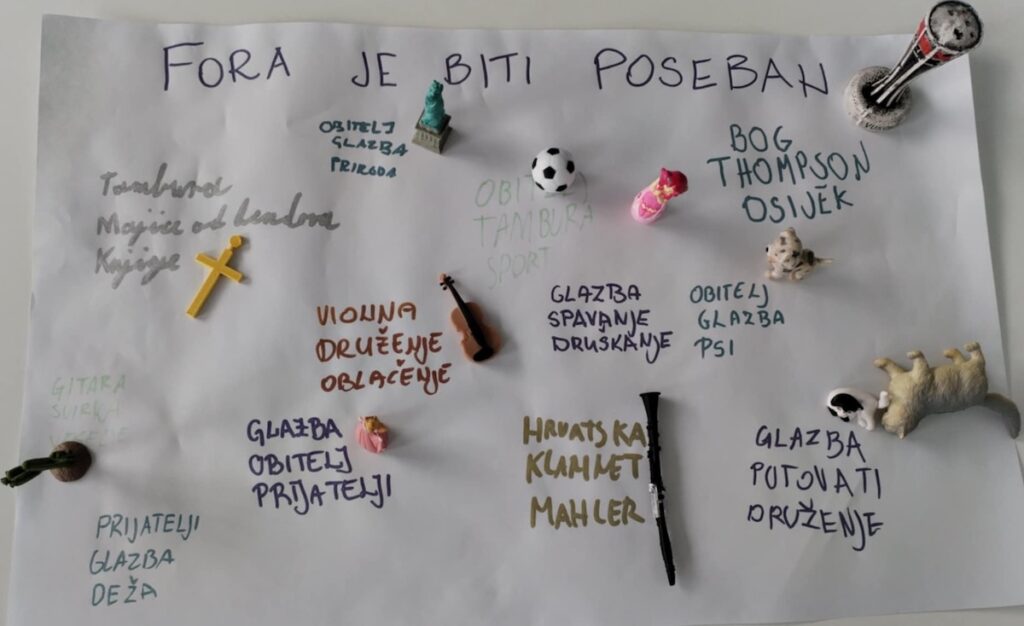 FORA JE BITI POSEBAN
OBITELJ
GLAZBA
PRIRODA
BOG
THOMPSON
OSIJEK
Tambura
Majice od bendova
Knjige
TAMBURA
SPORT
VIOLINA
DRUŽENJE
OBLAČENJE
GLAZBA
SPAVANJE
DRUŠKANJE
OBITELJ
GLAZBA
PSI
GITARA
GLAZBA
OBITELJ
PRIJATELJI
HRVATSKA
KLARINET
MAHLER
GLAZBA
PUTOVATI
DRUŽENJE
PRIJATELJI
GLAZBA
DEŽA